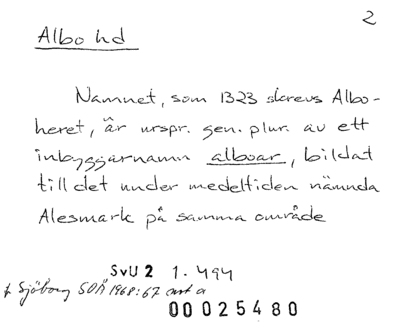 2
Albo hd
Namnet, som 1323 skrevs Albo-
heret, är urspr. gen. plur. av ett
inbyggarnamn alboar, bildat
till det under medeltiden nämnda
Alesmark på samma område
SvU 2 1.494
Sjöborg SOÅ 1968:67 ant a
00025480